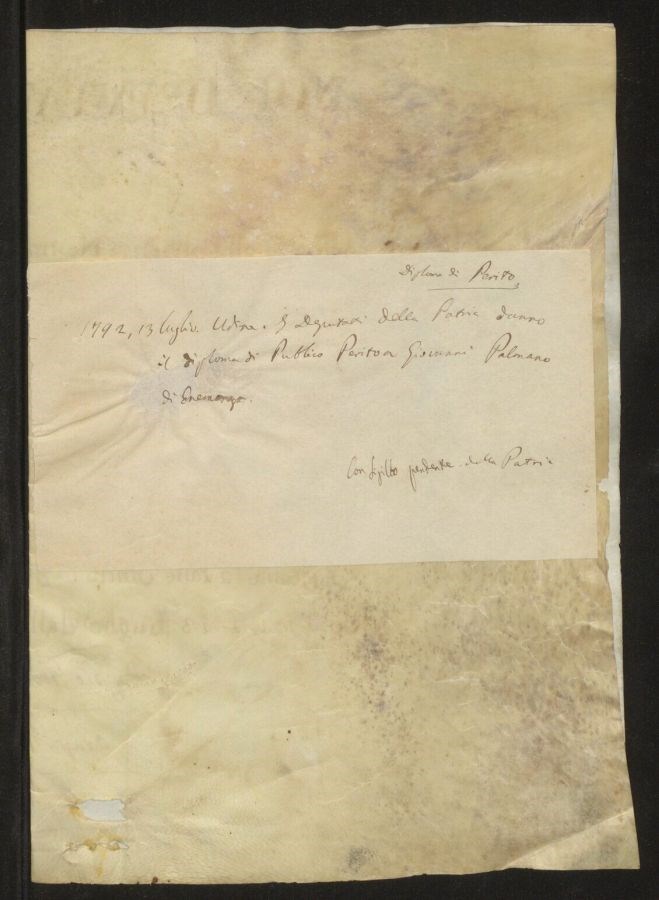 Diploma di Perito
1792, 13 luglio. Udine. I Deputati della Patria danno
il diploma di Publico Perito a Giovanni Palmano
di Enemonzo.
Con sigillo pendente della Patria